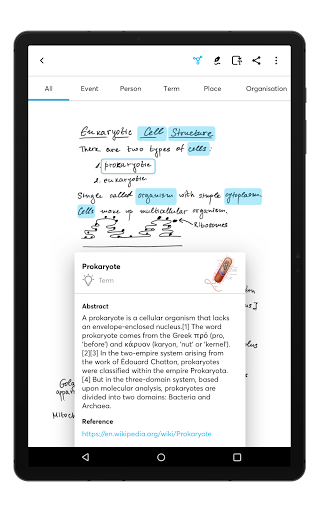 All Event Person Term Place Organisation
Eukaryotic Cell Structure
There are two types of cells:
1. prokaryotic
2. eukaryotic
Single called organism with simple cytoplasm.
Cells make up multicellular organism.
Ribosomes
Prokaryote
Term
Abstract
A prokaryote is a cellular organism that lacks
an envelope-enclosed nucleus.[1] The word
prokaryote comes from the Greek πρό (pro,
'before') and κάρυον (karyon, 'nut' or 'kernel').
[2][3] In the two-empire system arising from
the work of Edouard Chatton, prokaryotes
were classified within the empire Prokaryota.
[4] But in the three-domain system, based
upon molecular analysis, prokaryotes are
divided into two domains: Bacteria and
Archaea.
Reference
https://en.wikipedia.org/wiki/Prokaryote